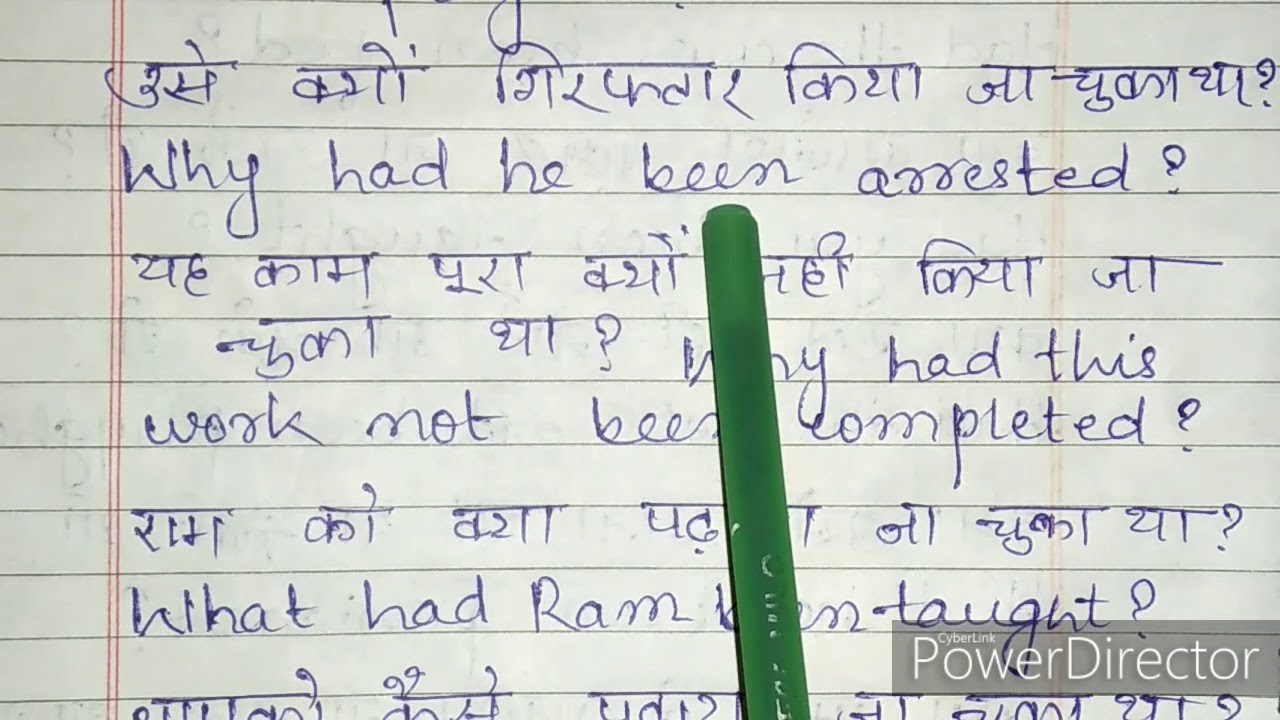 उसे क्यों गिरफ्तार किया जा चुका था?
Why had he been arrested?
यह काम पूरा क्यों नहीं किया जा
चुका था? Why had this
work not been completed?
राम को क्या पढ़ाया जा चुका था?
What had Ram been taught?
आपको कैसे जा चुका था?
CyberLink
PowerDirector